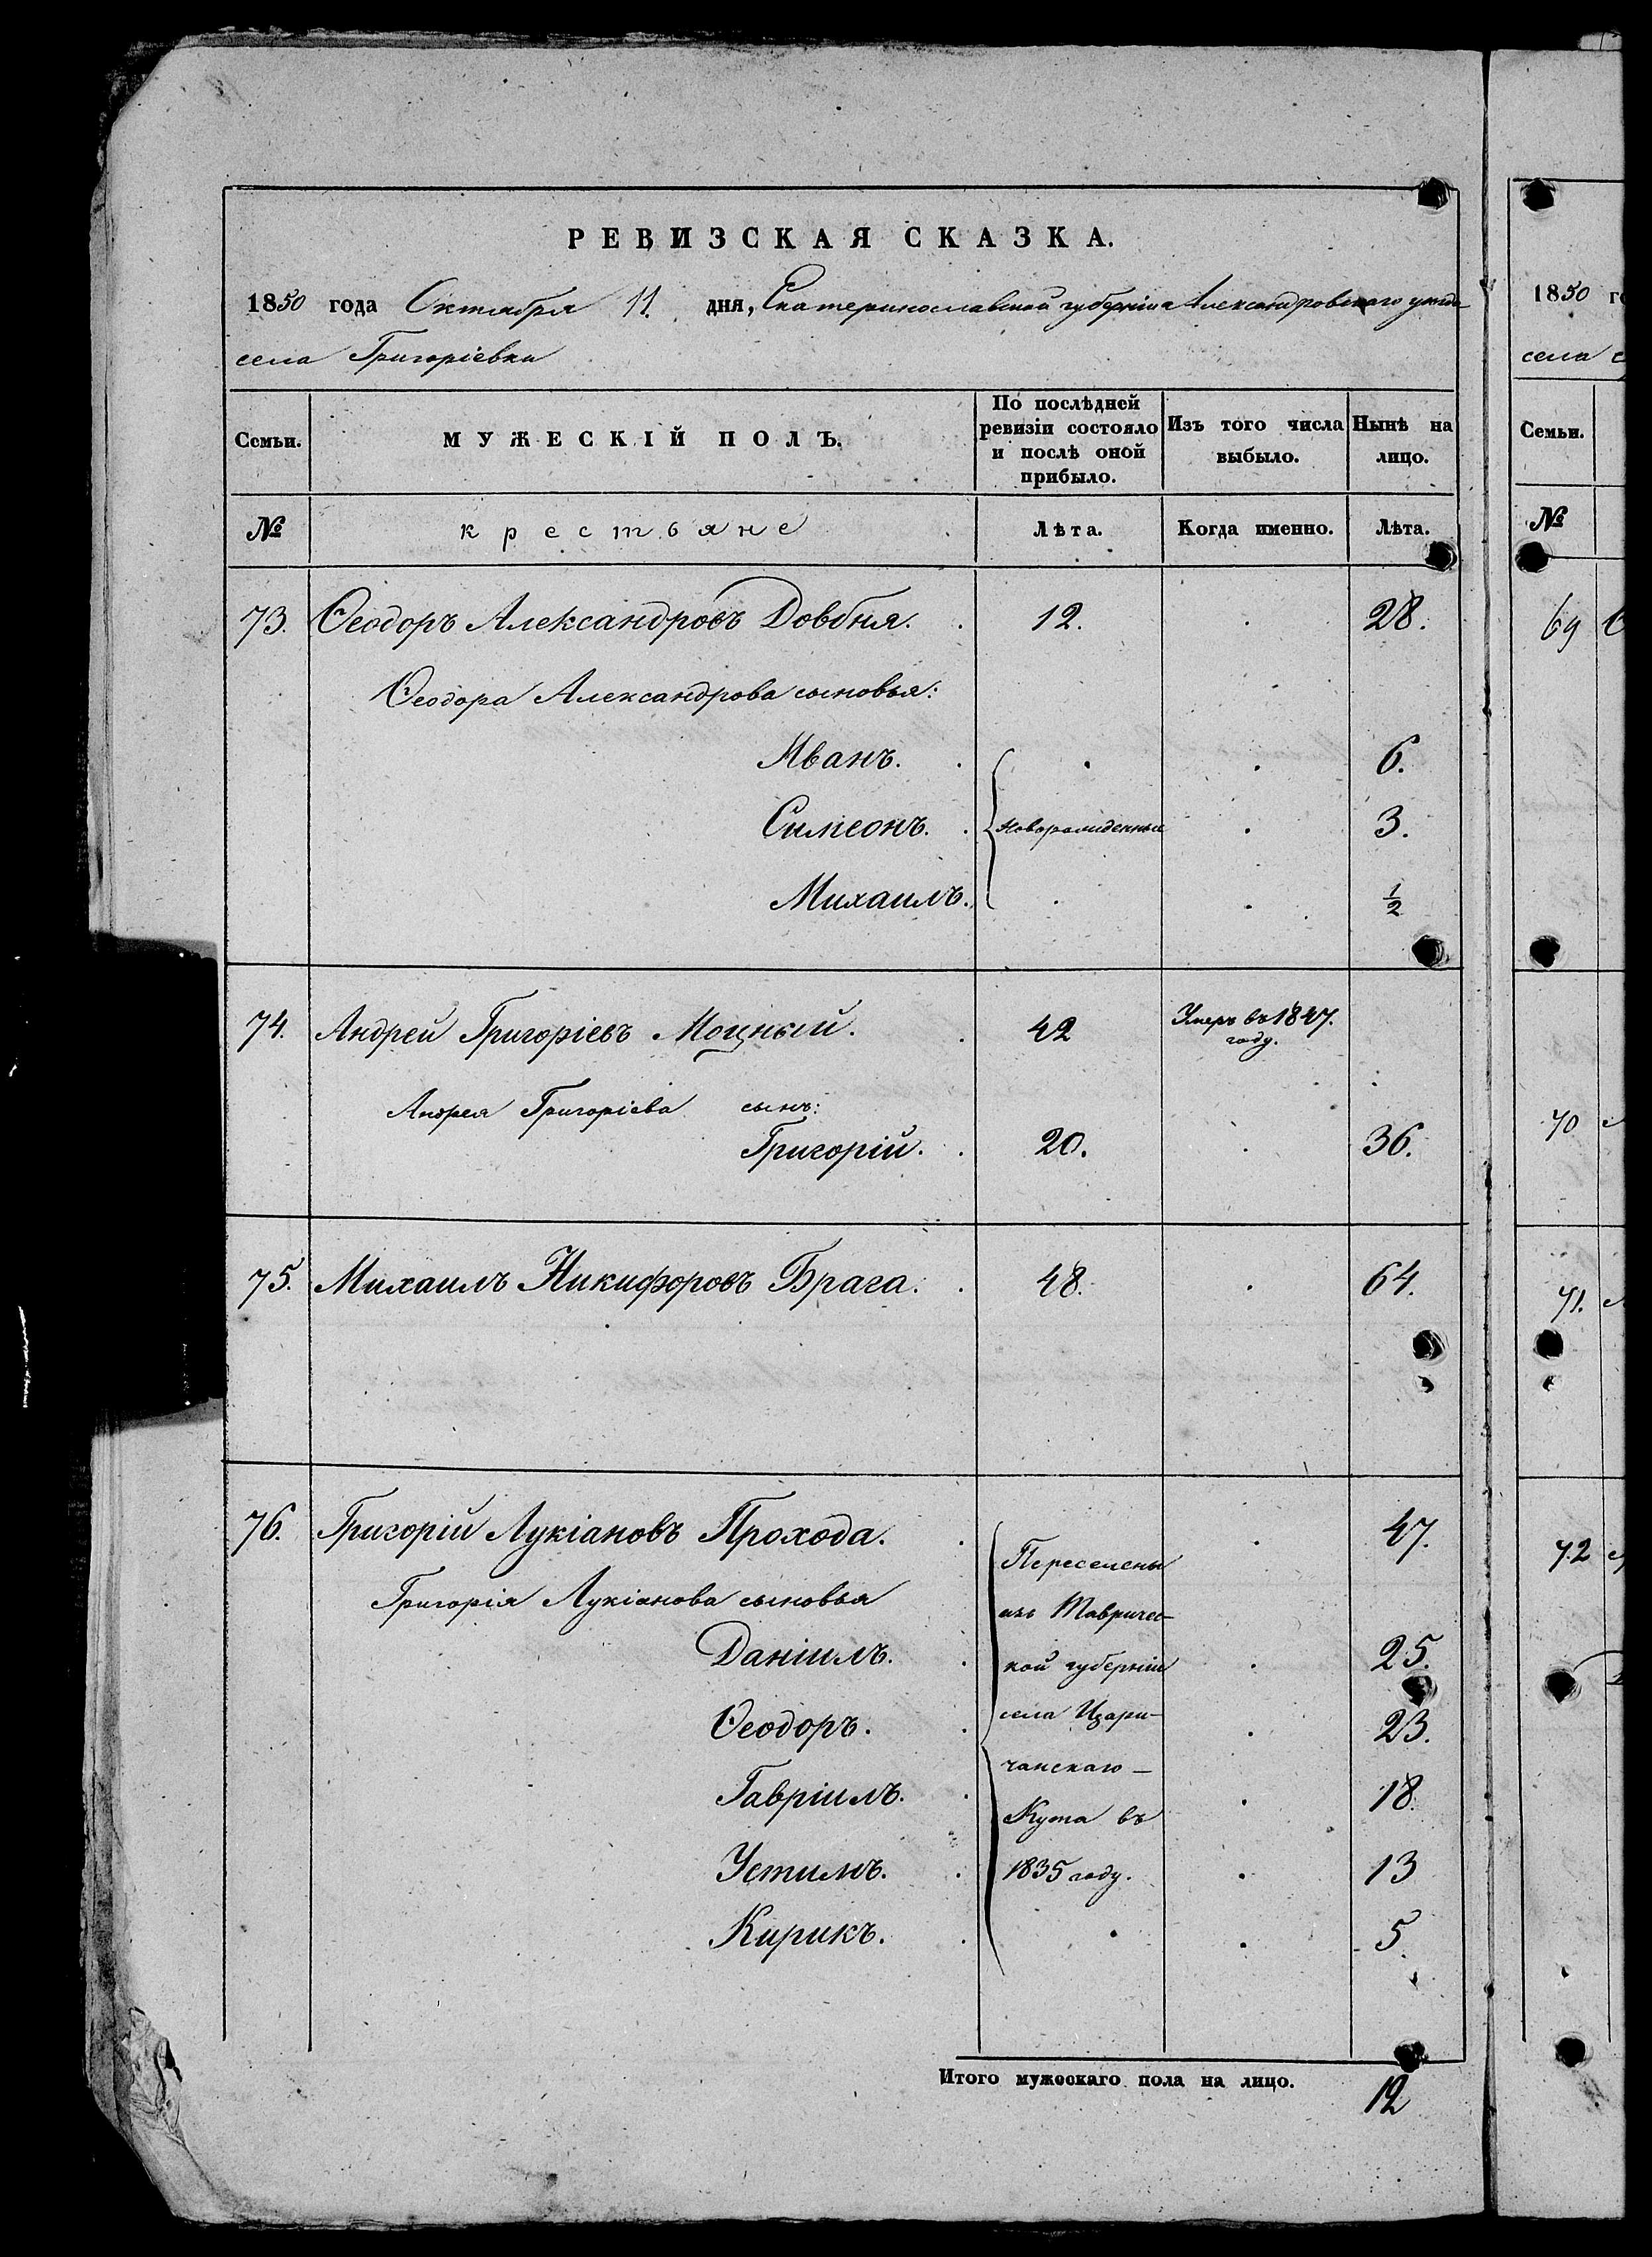 РЕВИЗСКАЯ СКАЗКА.
1850 года Октября 11. дня, Екатеринославской губерніи Александровскаго уезда
села Григоріевки
Семьи. МУЖЕСКІЙ ПОЛЪ. По послѣдней ревизіи состояло и послѣ оной прибыло. Изъ того числа выбыло. Нынѣ на лицо.
№ крестьяне Лѣта. Когда именно. Лѣта.
73. Ѳеодоръ Александровъ Довбня. 12. 28.
Ѳеодора Александрова сыновья:
Иванъ. 6.
Симеонъ. Новорожденные 3.
Михаилъ. 1/2
74. Андрей Григоріевъ Моцный. 42 Умеръ въ 1847. году.
Андрея Григоріева сынъ:
Григорій. 20. 36.
75. Михаилъ Никифоровъ Брага. 48. 64.
76. Григорій Лукіановъ Прохода. 47.
Переселены
Григорія Лукіанова сыновья
изъ Тавричес-
Даніилъ. 25.
кой губерніи
села Цари-
Ѳеодоръ. 23.
чанскаго —
Гавріилъ. 18.
Кута въ
Устимъ. 1835 году. 13
Кирикъ. 5.
Итого мужескаго пола на лицо. 12
1850 го
села
Семьи.
№
69
70
71.
72